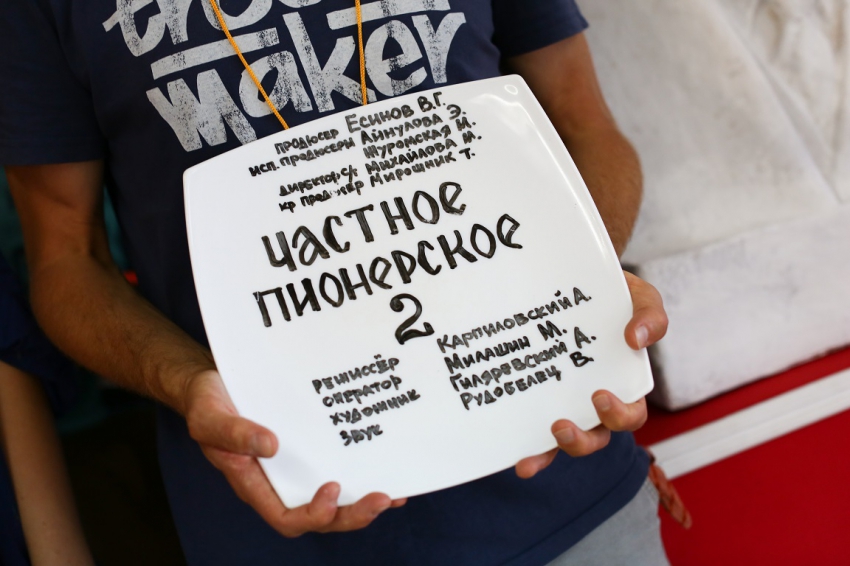 maker
ПРОДЮСЕР ЕСИНОВ В.Г.
ИСП. ПРОДЮСЕРЫ АЙНУЛОВА Э.
ЖУРОМСКАЯ И.
ДИРЕКТОР С/Г МИХАЙЛОВА М.
КР МИРОШНИК Т.
ЧАСТНОЕ
ПИОНЕРСКОЕ
2
РЕЖИССЁР КАРПИЛОВСКИЙ А.
ОПЕРАТОР МИЛАШИН М.
ХУДОЖНИК ГИЛЯРЕВСКИЙ А.
ЗВУК РУДОБЕЛЕЦ В.